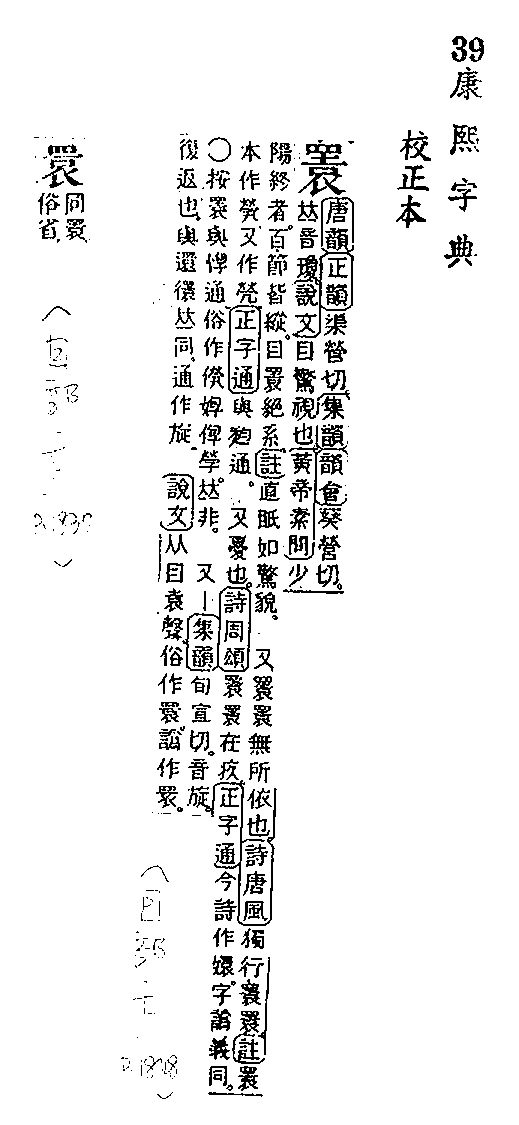 39康熙字典
校正本
瞏
唐韻正韻渠營切集韻韻會葵營切。
𠀤音瓊說文目驚視也黃帝素問少
陽終者。百節皆縱。目瞏絕系註直眂如驚貌。又瞏瞏無所依也。詩唐風獨行瞏瞏註瞏
本作煢又作㷀正字通與通。又憂也。詩周頌瞏瞏在疚正字通今詩作嬛字譌義同。
〇按瞏與惸通俗作𠀤非。又丨集韻旬宣切。音旋。
復返也與還𠀤同通作旋 說文从目袁聲俗作睘譌作。
（目部
睘
同瞏
俗省
（目部